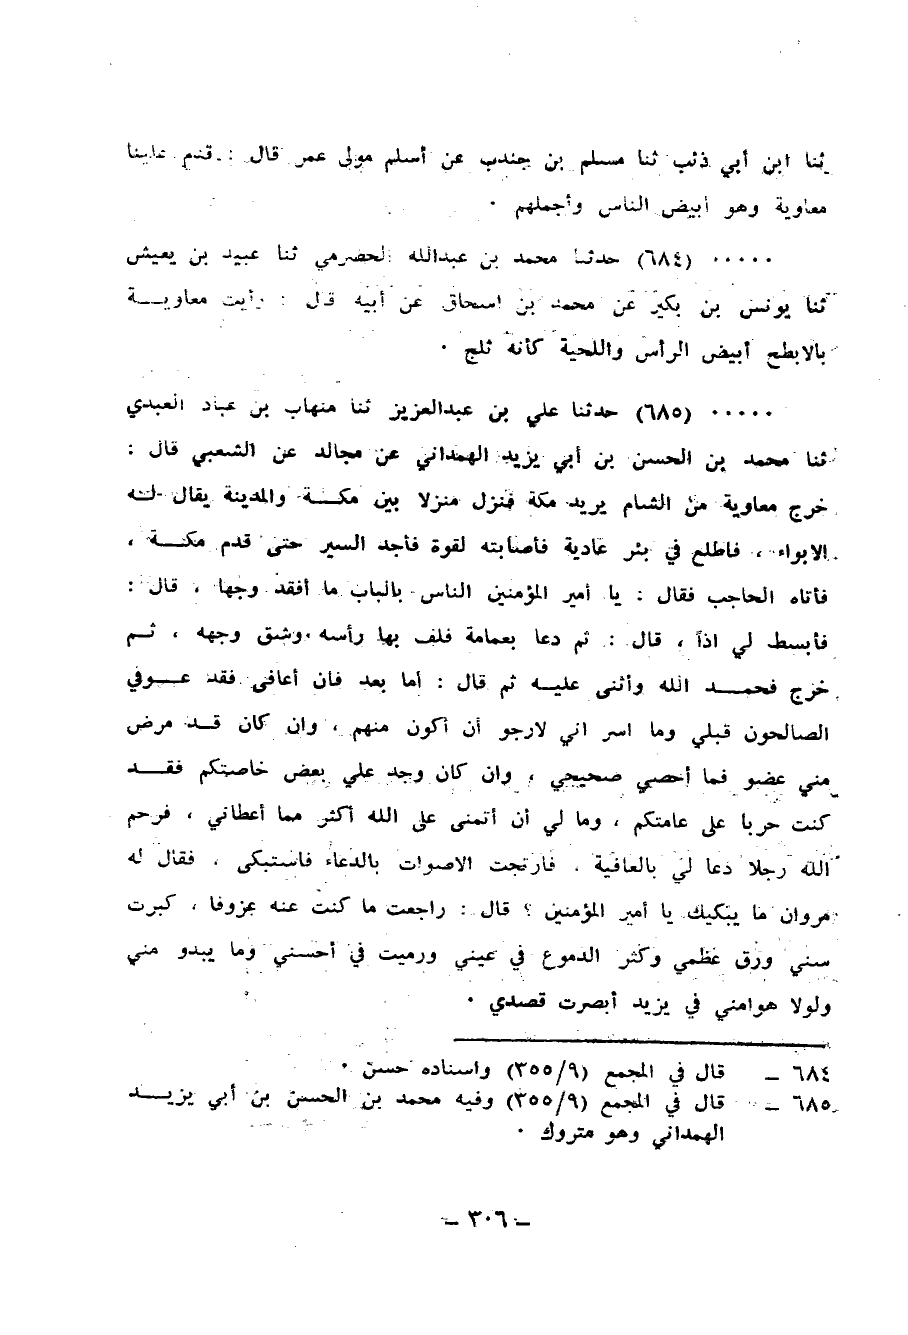 ثنا ابن أبي ذئب ثنا مسلم بن جندب عن أسلم مولى عمر قال : قدم علينا
معاوية وهو أبيض الناس وأجملهم ٠
٠٠٠٠٠ (٦٨٤) حدثنا محمد بن عبدالله الحضرمي ثنا عبيد بن يعيش
ثنا يونس بن بكير عن محمد بن اسحاق عن أبيه قال : رأيت معاويــة
بالابطح أبيض الرأس واللحية كأنه ثلج ٠
٠٠٠٠٠ (٦٨٥) حدثنا علي بن عبدالعزيز ثنا منهاب بن عباد العبدي
ثنا محمد بن الحسن بن أبي يزيد الهمداني عن مجالد عن الشعبي قال :
خرج معاوية من الشام يريد مكة فنزل منزلا بين مكــة والمدينة يقال لــه
الابواء ، فاطلع في بئر عادية فأصابته لقوة فأجد السير حتى قدم مكــة ،
فأتاه الحاجب فقال : يا أمير المؤمنين الناس بالباب ما أفقد وجها ، قال :
فأبسط لي اذاً ، قال : ثم دعا بعمامة فلف بها رأسه وشق وجهه ، ثــم
خرج فحمــد الله وأثنى عليــه ثم قال : أما بعد فان أعافى فقد عــوفي
الصالحون قبلي وما اسر اني لارجو أن أكون منهم ، وان كان قــد مرض
مني عضو فما أحصي صحيحي ، وان كان وجد علي بعض خاصتكم فقــد
كنت حربا على عامتكم ، وما لي أن أتمنى على الله أكثر مما أعطاني ، فرحم
الله رجلا دعا لي بالعافية ٠ فارتجت الاصوات بالدعاء فاستبكى ، فقال له
مروان ما يبكيك يا أمير المؤمنين ؟ قال : راجعت ما كنت عنه عزوفا ، كبرت
سني ورق عظمي وكثر الدموع في عيني ورميت في أحسني وما يبدو مني
ولولا هوامني في يزيد أبصرت قصدي ٠
٦٨٤ ــ قال في المجمع (٣٥٥/٩) واسناده حسن ٠
٦٨٥ ــ قال في المجمع (٣٥٥/٩) وفيه محمد بن الحسن بن أبي يزيــد
الهمداني وهو متروك ٠
ــ ٣٠٦ ــ